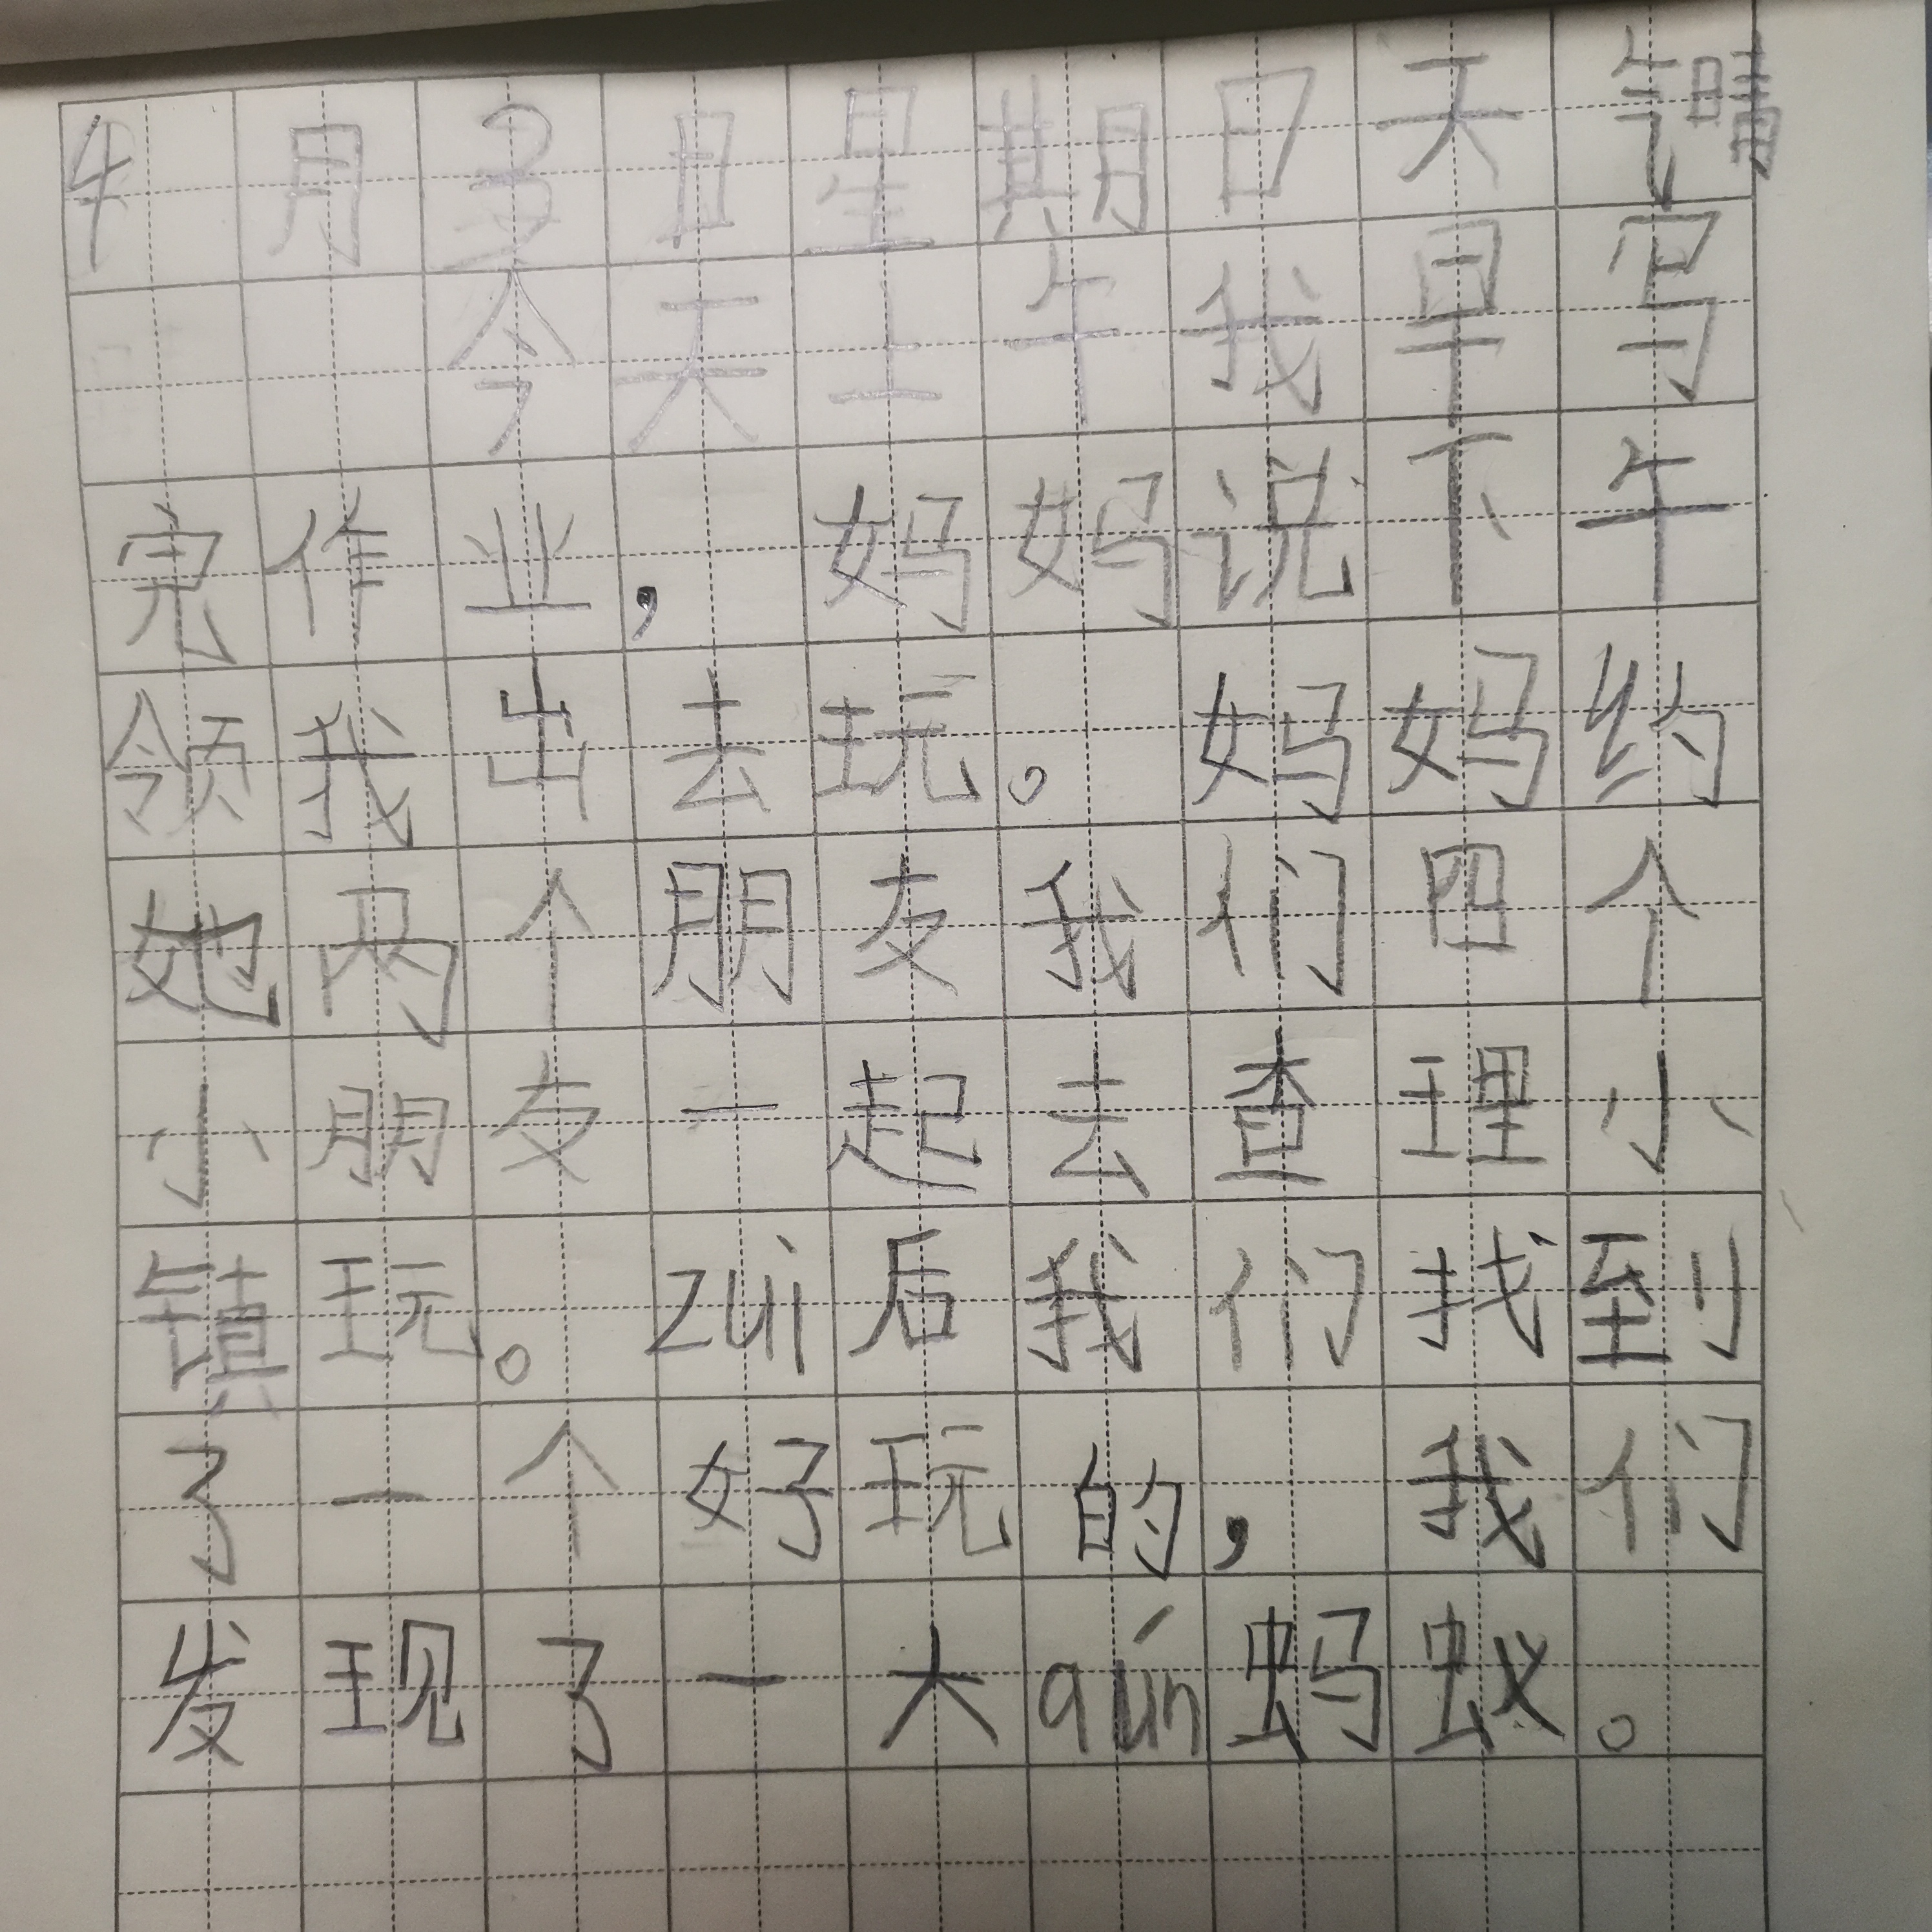 4月3日星期日天气晴
今天上午我早写
完作业，妈妈说下午
领我出去玩。妈妈约
她两个朋友我们四个
小朋友一起去查理小
镇玩。zuì后我们找到
了一个好玩的，我们
发现了一大qún蚂蚁。